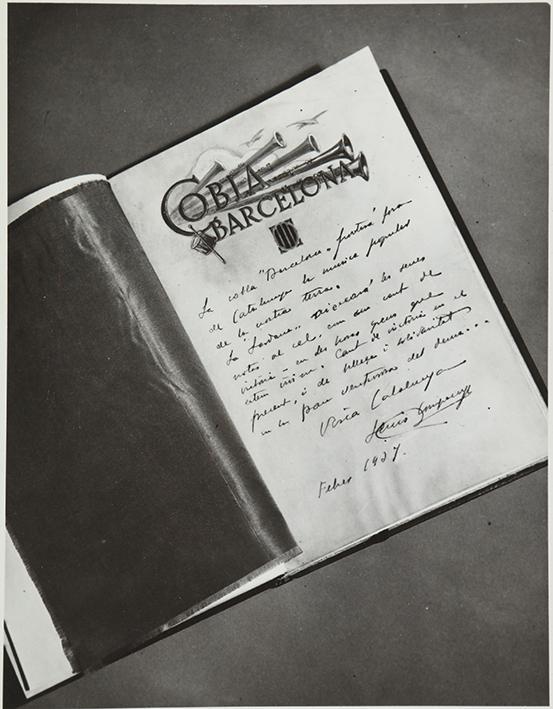 COBLA
BARCELONA
La cobla "Barcelona" portarà fora
de Catalunya la musica popular
de la nostra terra.
La Sardana. Dreçarà les seves
notes al cel, com un cant de
victoria - en les hores greus que
estem vivim. Cant de victoria en el
present, i de i solidaritat
en un pau venturosa del demà...
Visca Catalunya
Lluis Companys
Febrer 1937.